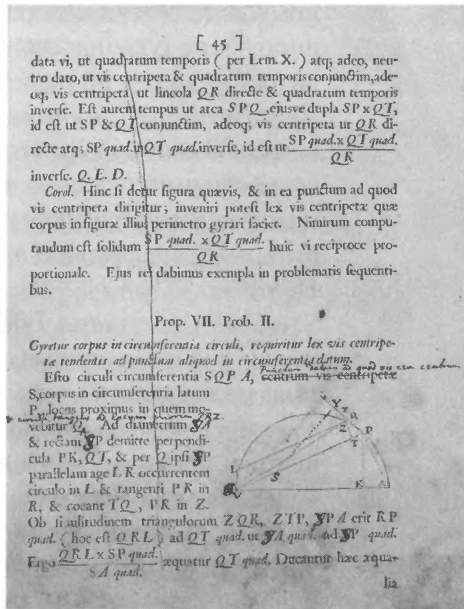 [ 45 ]
data vi, ut quadratum temporis ( per Lem. X. ) atq; adeo, neu-
tro dato, ut vis centripeta & quadratum temporis conjunctim, ade-
oq; vis centripeta ut lineola QR directe & quadratum temporis
inverse. Est autem tempus ut area SPQ, ejusve dupla SP x QT,
id est ut SP & QT conjunctim, adeoq; vis centripeta ut QR di-
recte atq; SP quad. in QT quad. inverse, id est ut SP quad. x QT quad.
QR
inverse. Q. E. D.
Corol. Hinc si detur figura quævis, & in ea punctum ad quod
vis centripeta dirigitur; inveniri potest lex vis centripetæ quæ
corpus in figuræ illius perimetro gyrari faciet. Nimirum compu-
tandum est solidum SP quad. x QT quad. huic vi reciproce pro-
QR
portionale. Ejus rei dabimus exempla in problematis sequenti-
bus.
Prop. VII. Prob. II.
Gyretur corpus in circumferentia circuli, requiritur lex vis centripe-
tæ tendentis ad punctum aliquod in circumferentia datum.
Esto circuli circumferentia SQPA, centrum vis centripetæ
S, corpus in circumferentia latum
P, locus proximus in quem mo-
vebitur Q. Ad diametrum A
& rectam P demitte perpendi-
cula PK, QT, & per Q ipsi P
parallelam age LR occurrentem
circulo in L & tangenti PR in
R, & coeant TQ, PR in Z.
Ob similitudinem triangulorum ZQR, ZTP, PA erit RP
quad. (hoc est QRL) ad QT quad. ut A quad. ad P quad.
Ergo QRL x SP quad. æquatur QT quad. Ducantur hæc æqua-
SA quad.
lia
Z
R
Q
P
T
L
S
K
A